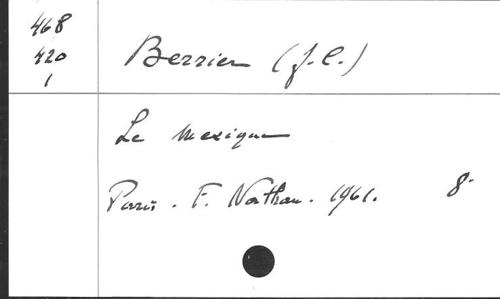 468
420
1
Berrier (J.C.)
Le Mexique
Paris. F. Nathan. 1961. 8°